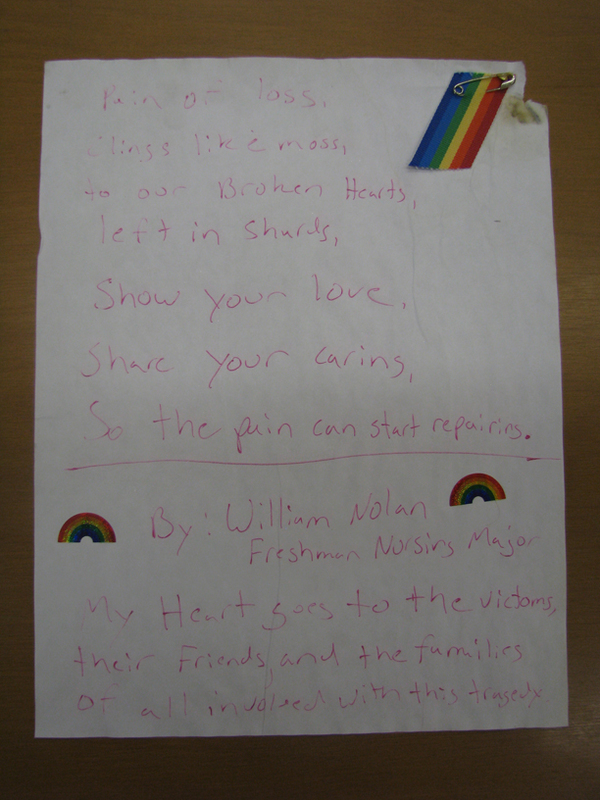 Pain of loss,
Clings like moss,
to our Broken Hearts,
left in Shards,
Show your love,
Share your caring,
So the pain can start repairing.
By: William Nolan
Freshman Nursing Major
My Heart goes to the victoms,
their Friends, and the families
of all involved with this tragedy.